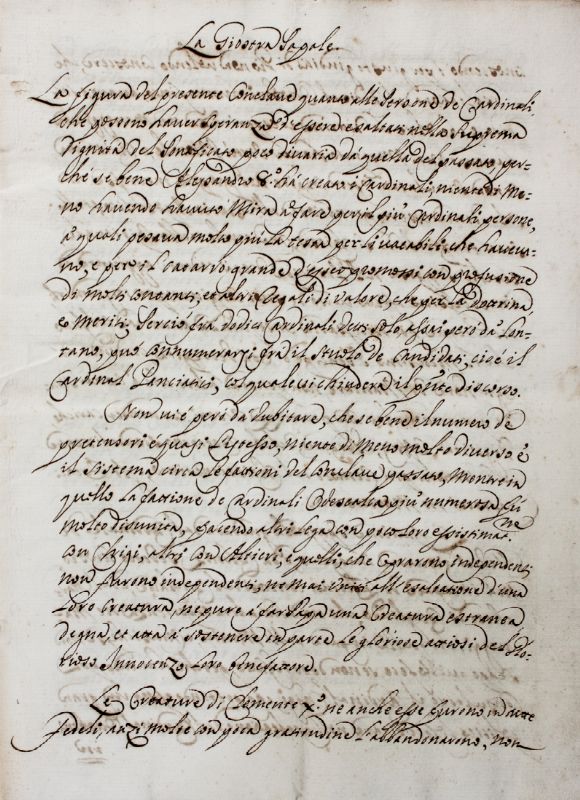 La Giostra Papale.
La figura del presente Conclave quanto alle persone de Cardinali,
che possono haver speranza d'essere esaltati nella suprema
Dignità del Ponteficato poco divaria da quella del passato, per-
ché se bene Alessandro 8.º ha creato Cardinali, niente di Me-
no havendo havuto Mira a fare per il più Cardinali persone,
a quali pesava molto più la testa per li vacabili, che haveva-
no, e per il Casario grande d'esser promossi con profusione
di molti contanti, et altri regali di valore, che per la Dottrina
e Meriti. Perciò fra dodici Cardinali detti solo, assai però da lon-
tano, può connumerarsi fra il stuolo de Candidati, cioè il
Cardinal Panciatici, col quale si chiuderà il pñte discorso.
Non vi è però da dubitare, che se bene il numero de
pretensori è quasi l'istesso, niente di Meno molto diverso è
il sistema circa le fattioni del Conclave passato, Mentre in
quello la fattione de Cardinali Odescalca più numerosa fu
molto disunita, facendo altri lega con poco loro essistimat.ne
con Chigi, altri con Altieri, e quelli, che sperarono independenti
non furono independenti, ne mai uniti all'esaltatione d'una
loro Creatura, ne pure a far Papa una Creatura estranea
degna, et atta a sostenere in parte le gloriose attioni del Glo-
rioso Innocenzo loro benefattore.
Le Creature di Clemente X.º ne anche esse furono in tutte
fedeli, anzi molte con poca gratitudine l'abbandonarono, non